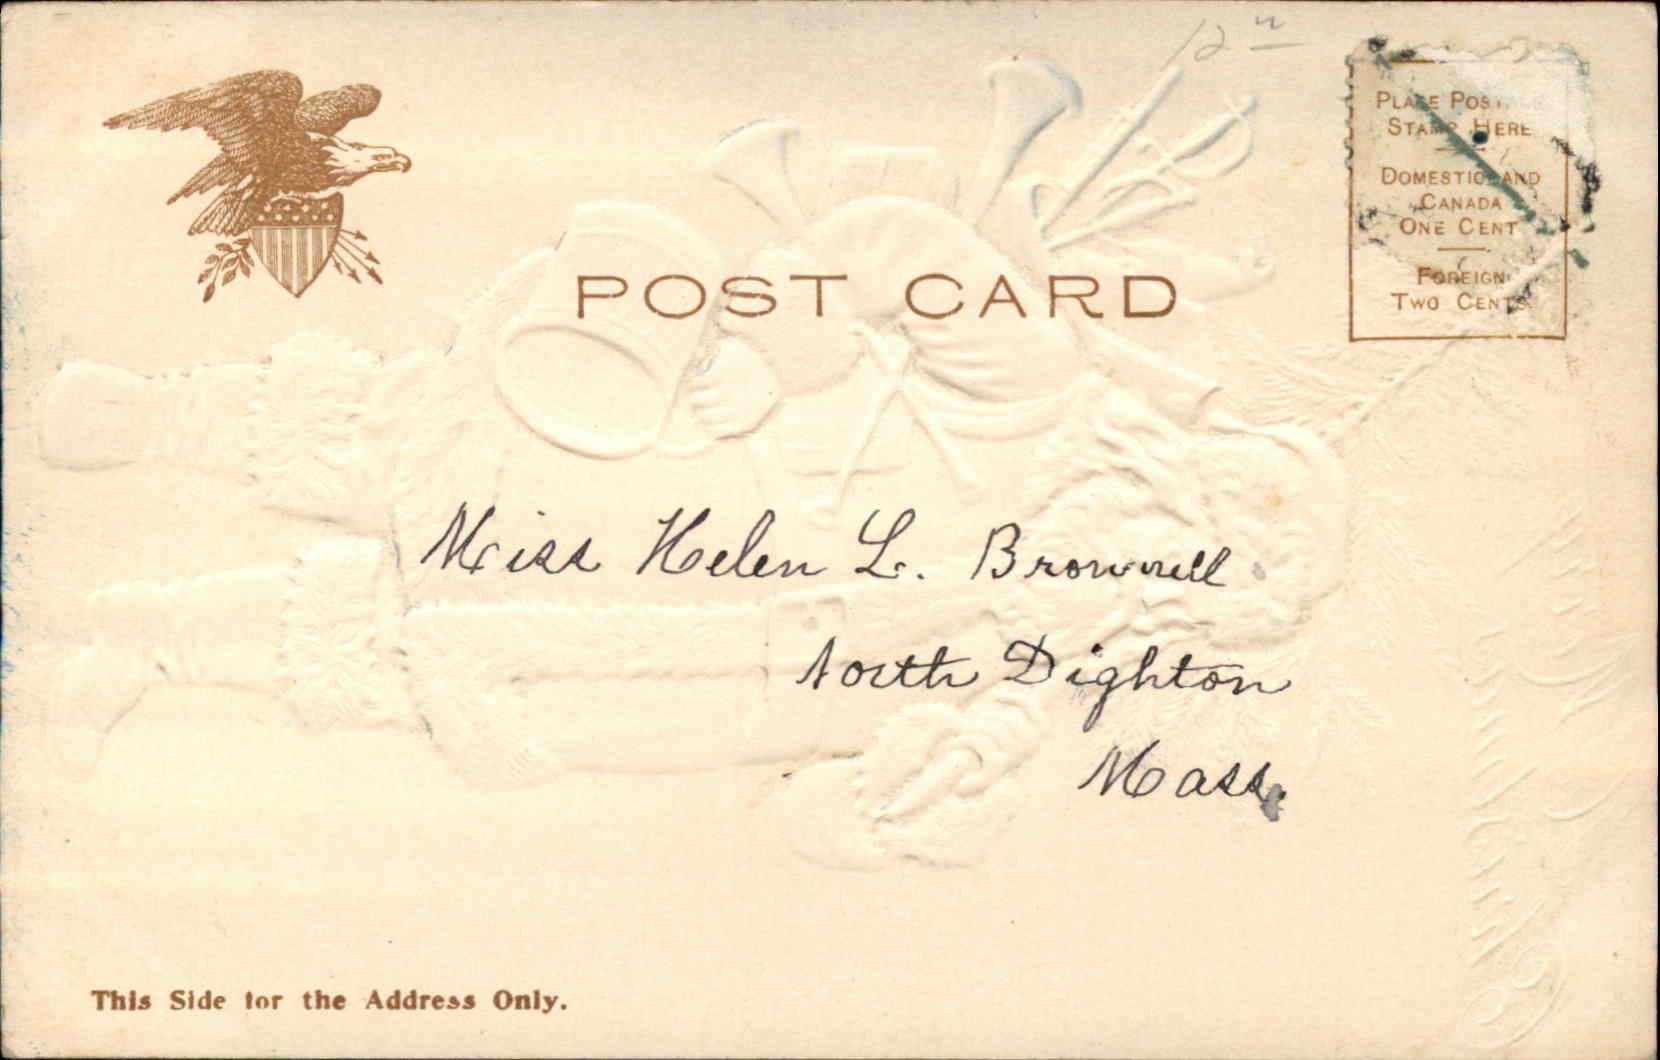 12
PLACE POSTAGE
STAMP HERE
DOMESTIC AND
CANADA
ONE CENT
FOREIGN
TWO CENTS
POST CARD
Miss Helen L. Brownell
North Dighton
Mass.
This Side for the Address Only.